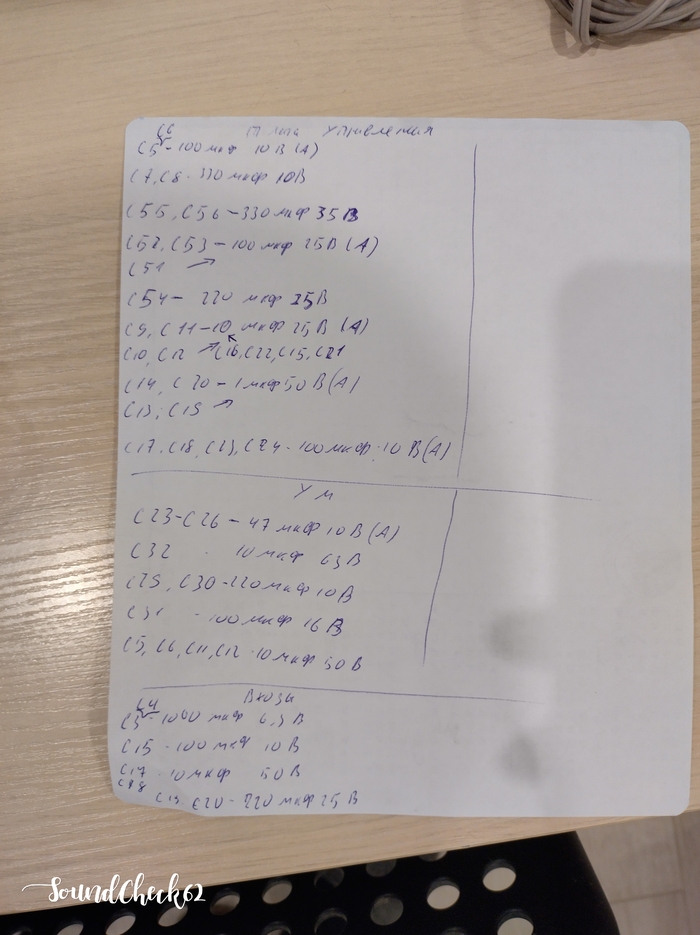 С6 Плата управления
С5 - 100 мкф 10В (А)
С7, С8 - 330 мкф 10В
С55, С56 - 330 мкф 35В
С52, С53 - 100 мкф 25В (А)
С51 ↗
С54 - 220 мкф 25В
С9, С11 - 10 мкф 25В (А)
С10, С12 ↗ С16, С22, С15, С21
С14, С20 - 1 мкф 50В (А)
С13, С19 ↗
С17, С18, С23, С24 - 100 мкф 10В (А)
УМ
С23-С26 - 47 мкф 10В (А)
С32 - 10 мкф 63В
С29, С30 - 220 мкф 10В
С31 - 100 мкф 16В
С5, С6, С11, С12 - 10 мкф 50В
Входы
С4
С3 - 1000 мкф 6,3В
С15 - 100 мкф 10В
С17 - 10 мкф 50В
С18
С19, С20 - 220 мкф 25В
SoundCheck62